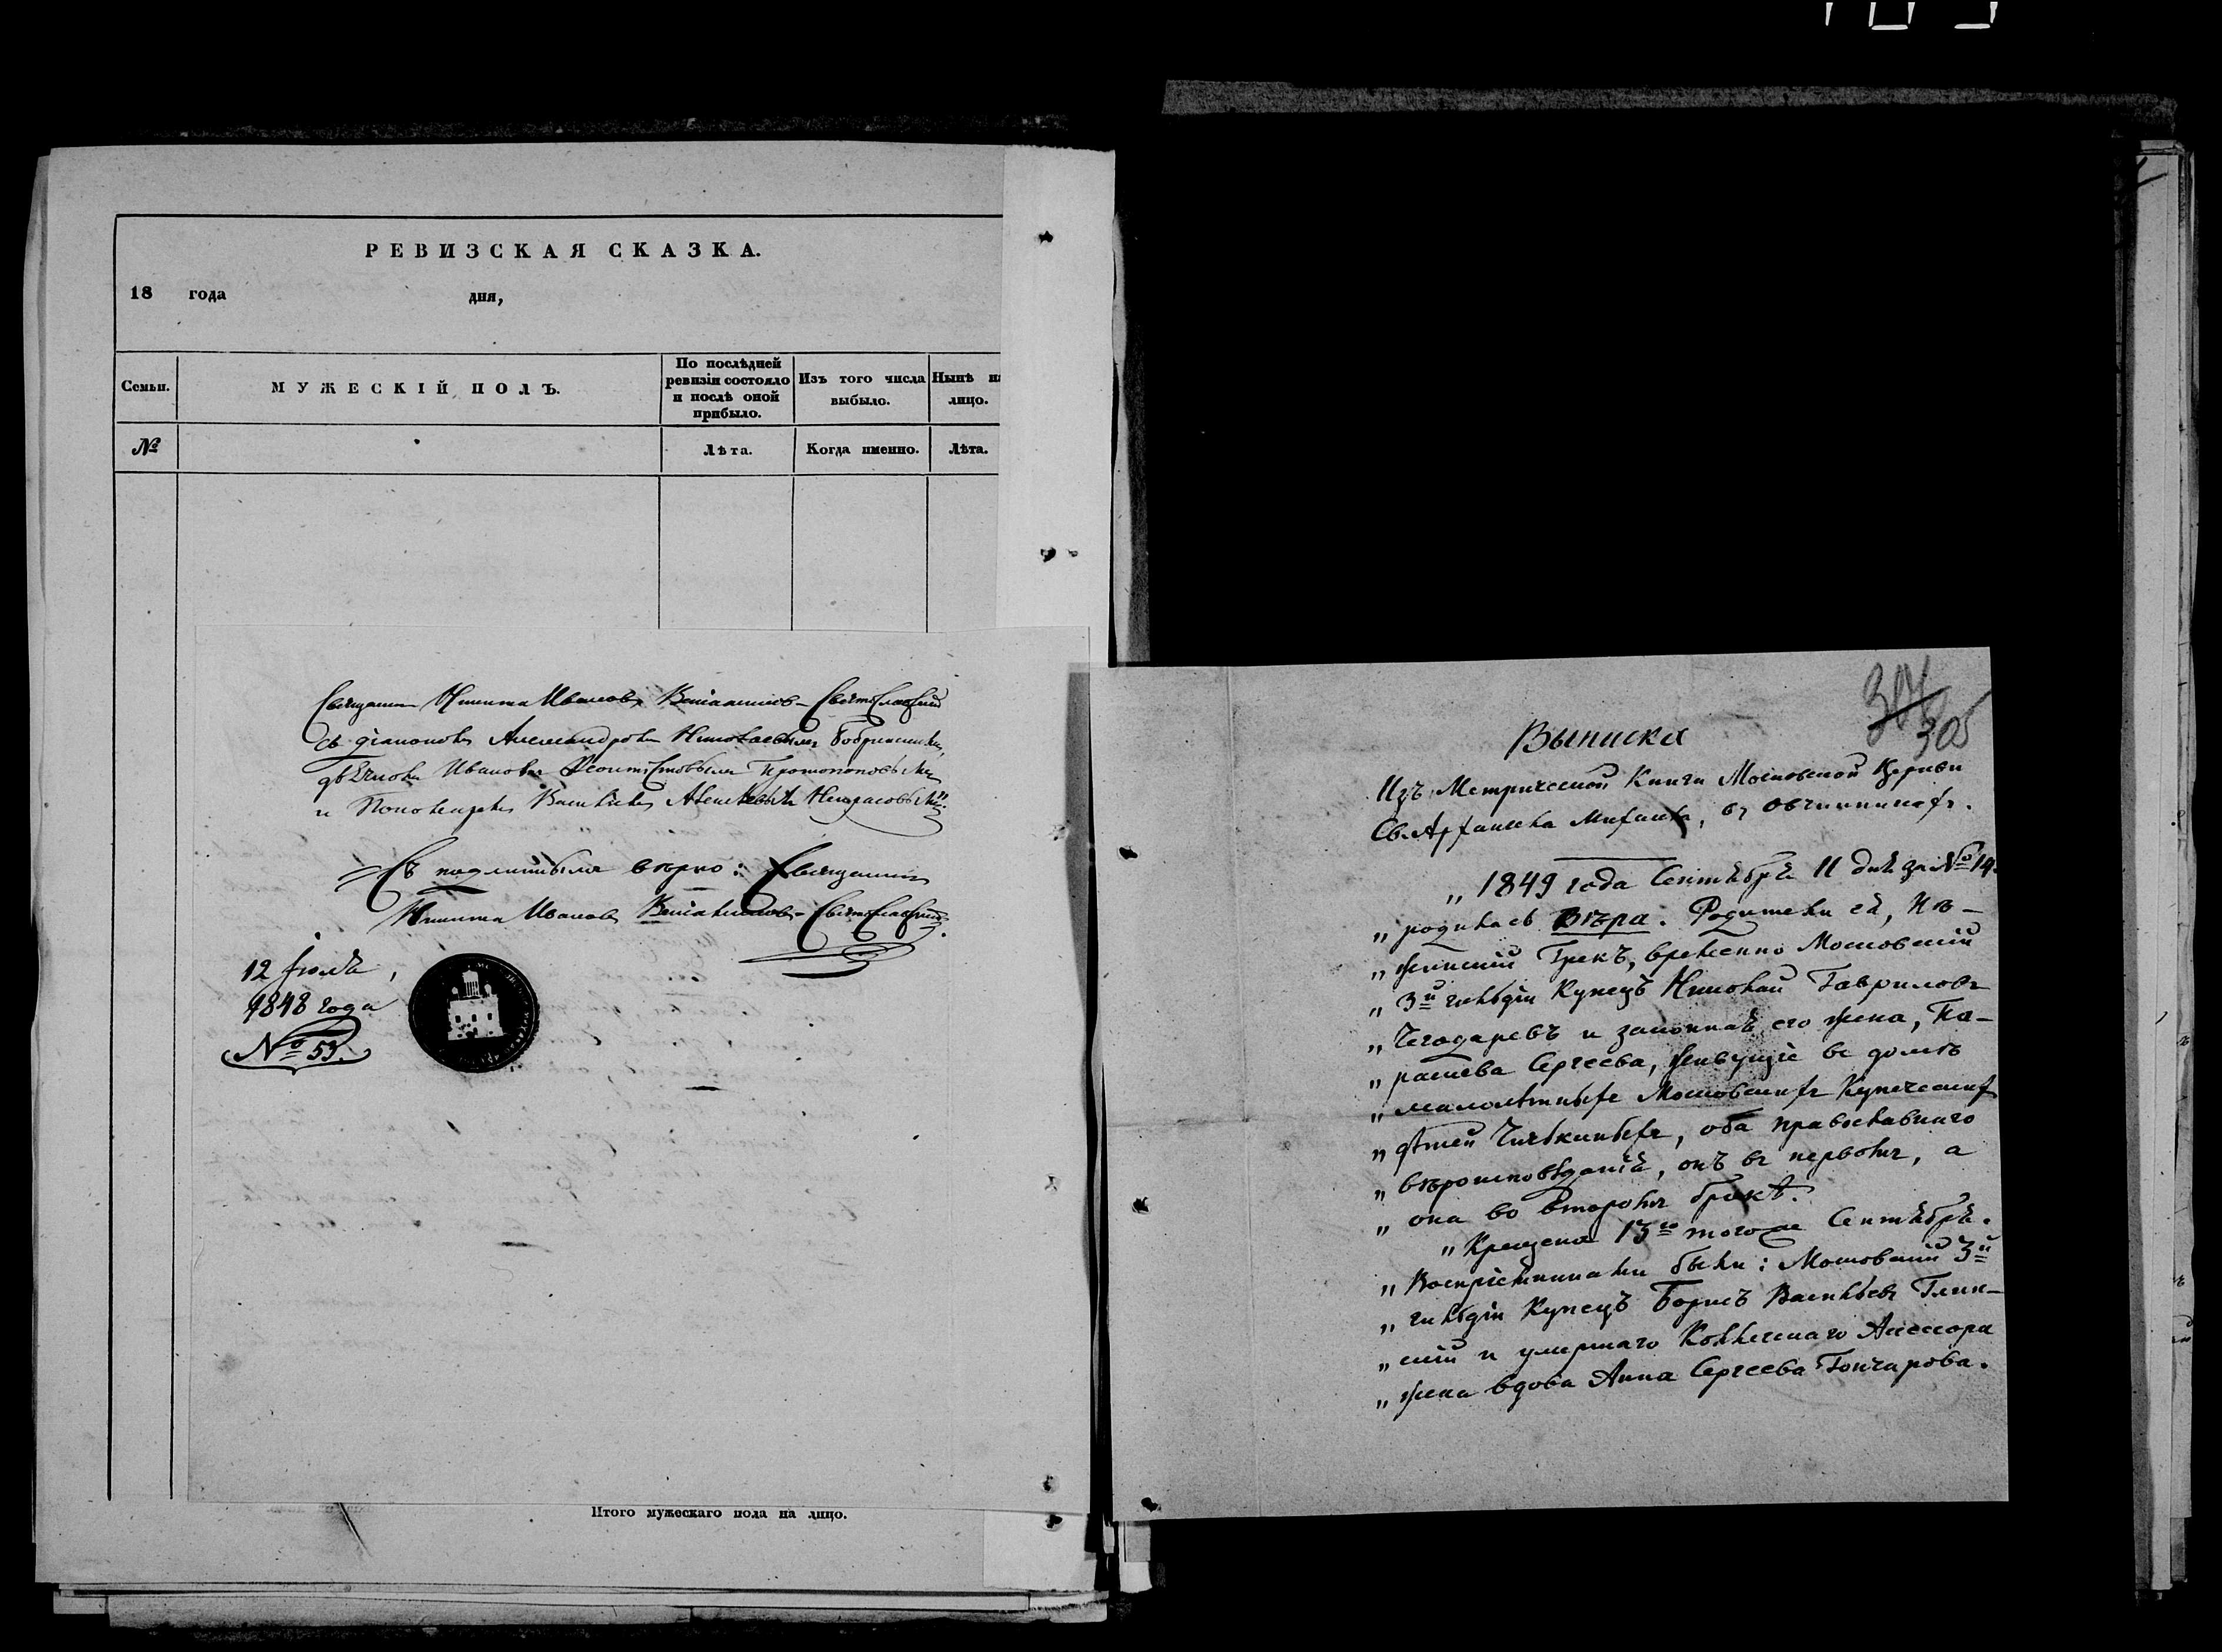 РЕВИЗСКАЯ СКАЗКА.
18 года дня,
Семьи.
МУЖЕСКІЙ ПОЛЪ.
По послѣдней
ревизіи состояло
и послѣ оной
прибыло.
Изъ того числа
выбыло.
Нынѣ на
лицо.
№
Лѣта.
Когда именно.
Лѣта.
Священникъ Никита Ивановъ
съ діакономъ Александромъ Николаевымъ
дьячкомъ Иваномъ Феоктистовымъ Протопоповымъ
и Пономаремъ Василіемъ Алексѣевымъ Некрасовымъ.
Съ подлиннымъ вѣрно: Священникъ
Никита Ивановъ
12 Іюля,
1848 года
№ 53.
Итого мужескаго пола на лицо.
304
305
Выписка
Изъ Метрической Книги Московской Церкви
Св. Архангела Михаила, въ Овчинникахъ.
„ 1849 года Сентября 11 дня за № 14.
„ родилась Вѣра. Родители ея, Нѣ-
„ жинскій Грекъ, временно Московскій
„ 3й гильдіи Купецъ Николай Гавриловъ
„ Чегодаревъ и законная его жена, Па-
„ раскева Сергеева, живущіе въ домѣ
„ малолѣтныхъ Московскихъ Купеческихъ
„ дѣтей, оба православнаго
„ вѣроисповѣданія, онъ въ первомъ, а
„ она во второмъ бракѣ.
„ Крещена 13го того же Сентября.
„ Воспріемниками были: Московскій 3й
„ гильдіи Купецъ Борисъ Васильевъ Глин-
„ скій и умершаго Коллежскаго Ассесора
„ жена вдова Анна Сергеева Гончарова.